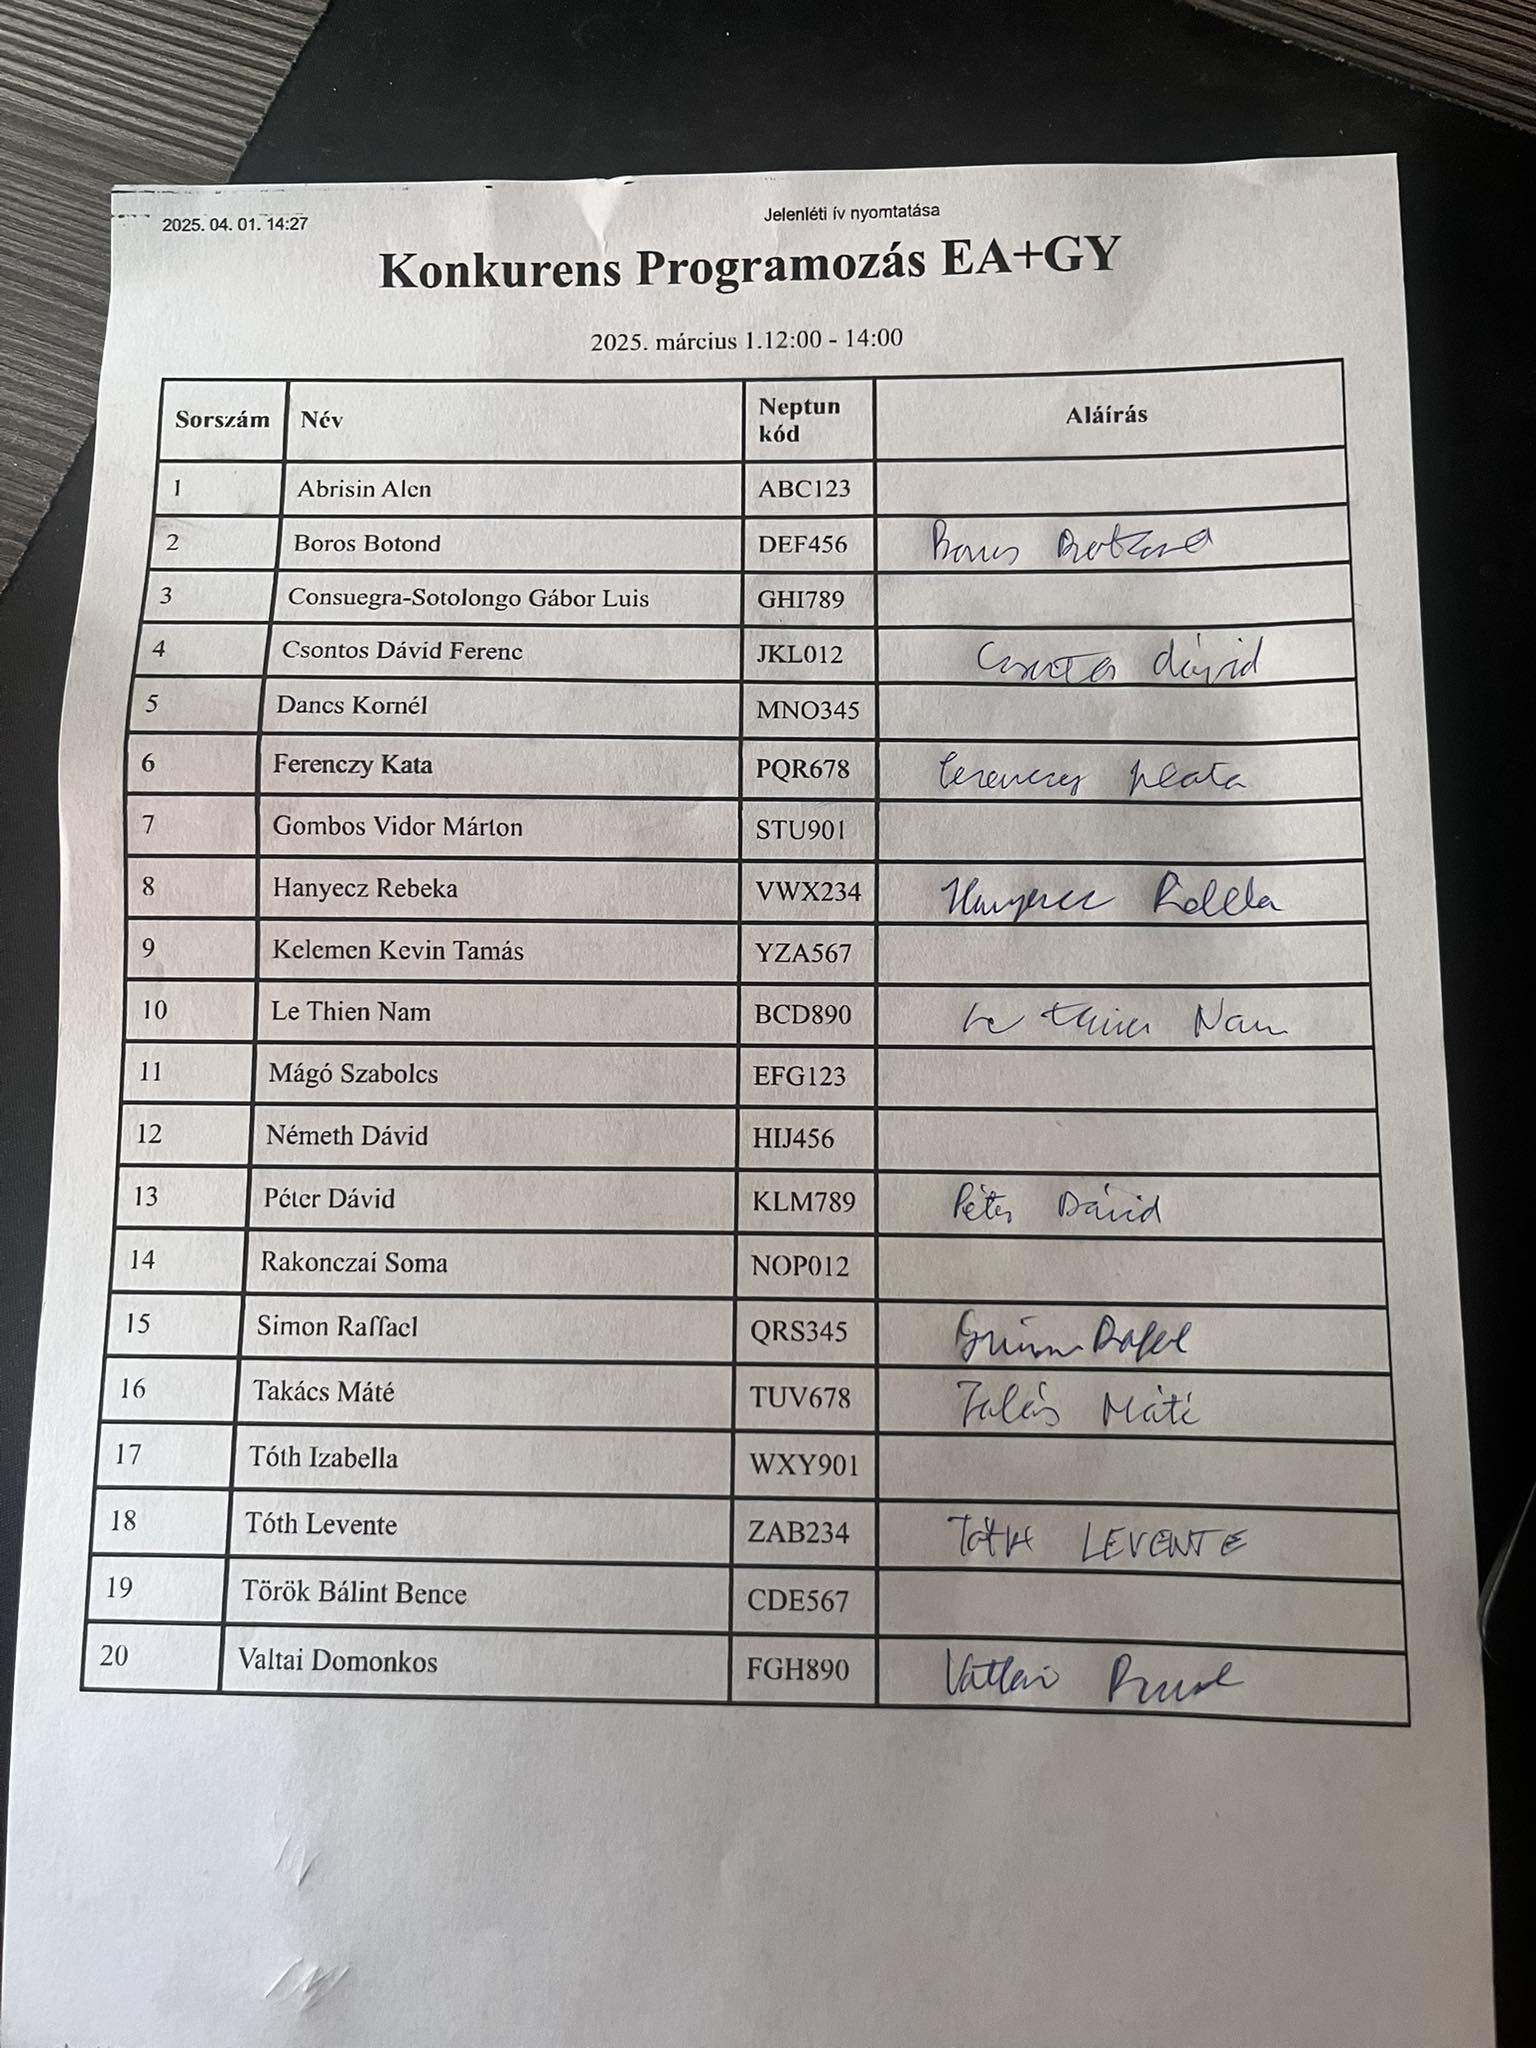 2025. 04. 01. 14:27 Jelenléti ív nyomtatása
Konkurens Programozás EA+GY
2025. március 1.12:00 - 14:00
Sorszám Név Neptun kód Aláírás
1 Abrisin Alen ABC123
2 Boros Botond DEF456 Boros Botond
3 Consuegra-Sotolongo Gábor Luis GHI789
4 Csontos Dávid Ferenc JKL012 Csontos Dávid
5 Dancs Kornél MNO345
6 Ferenczy Kata PQR678 Ferenczy Kata
7 Gombos Vidor Márton STU901
8 Hanyecz Rebeka VWX234 Hanyecz Rebeka
9 Kelemen Kevin Tamás YZA567
10 Le Thien Nam BCD890 Le Thien Nam
11 Mágó Szabolcs EFG123
12 Németh Dávid HIJ456
13 Péter Dávid KLM789 Péter Dávid
14 Rakonczai Soma NOP012
15 Simon Raffael QRS345 Simon
16 Takács Máté TUV678 Máté
17 Tóth Izabella WXY901
18 Tóth Levente ZAB234 Tóth LEVENTE
19 Török Bálint Bence CDE567
20 Valtai Domonkos FGH890 Valtai